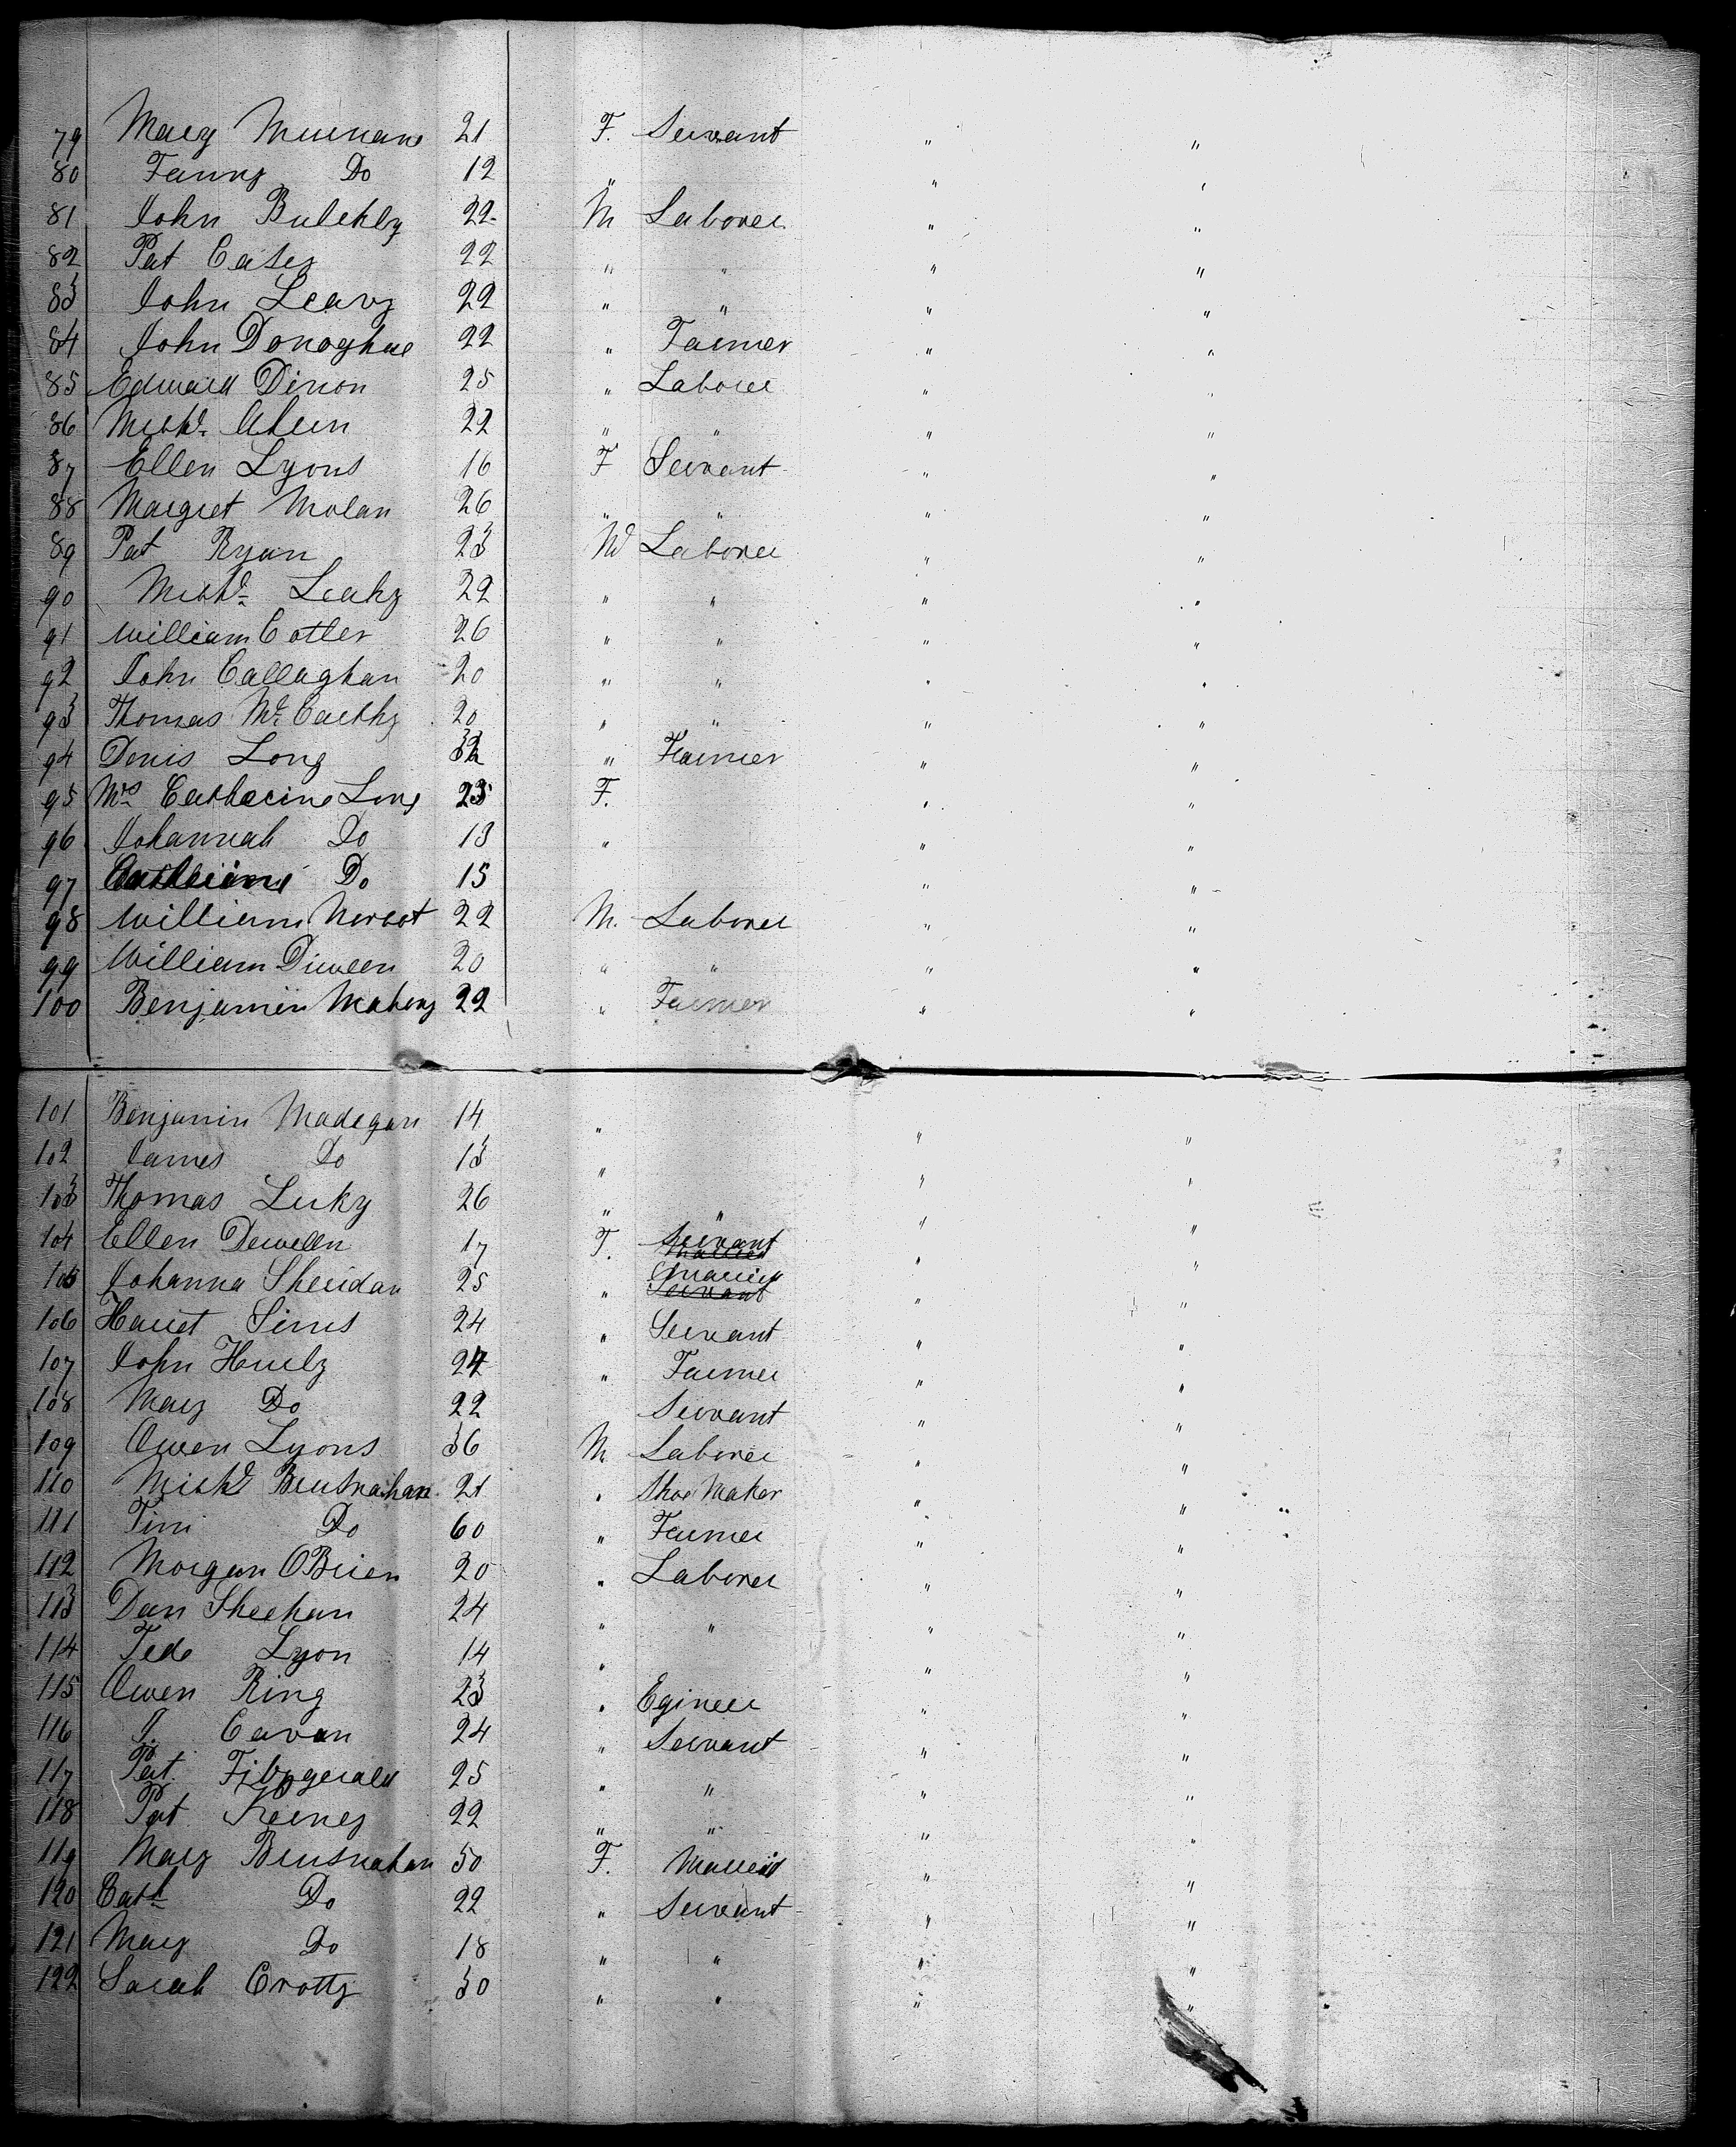 79 Mary Murnane 21 F. Servant " "
80 Fanny Do 12 " " "
81 John Bulekly 22 M Laborer " "
82 Pat Casey 22 " " " "
83 John Leary 22 " " " "
84 John Donoghue 22 " Farmer " "
85 Edward Dinon 25 " Laborer " "
86 Michl. Ahern 22 " " " "
87 Ellen Lyons 16 F Servant " "
88 Margret Molan 26 " " " "
89 Pat Ryan 23 M Laborer " "
90 Michl. Leahy 22 " " " "
91 William Cotter 26 " " " "
92 John Callaghan 20 " " " "
93 Thomas Mc. Carthy 20 " " " "
94 Denis Long 32 " Farmer " "
95 Mrs Catharine Long 25 F. " "
96 Johannah Do 13 " " "
97 Catherine Do 15 " "
98 William Norbot 22 M. Laborer " "
99 William Diween 20 " " " "
100 Benjamin Mahony 22 " Farmer " "
101 Benjamin Madegan 14 " " "
102 James Do 13 " " "
103 Thomas Luky 26 " " " "
104 Ellen Dewelln 17 F. Servant " "
105 Johanna Sheridan 25 " Married Servant " "
106 Harriet Sims 24 " Servant " "
107 John Hurly 24 " Farmer " "
108 Mary Do 22 Servant " "
109 Owen Lyons 36 M. Laborer " "
110 Michl Brusnahan 21 " Shoe Maker " "
111 Tim Do 60 " Farmer " "
112 Morgan OBrien 20 " Laborer " "
113 Dan Sheehan 24 " " " "
114 Tede Lyon 14 " " "
115 Owen Ring 23 " Egineer " "
116 T. Cavan 24 " Servant " "
117 Pat. Fitzgerald 25 " " " "
118 Pat Keeney 22 " " " "
119 Mary Brusnahan 50 F. Married " "
120 Cath Do 22 " Servant " "
121 Mary Do 18 " " " "
122 Sarah Crotty 30 " " " "